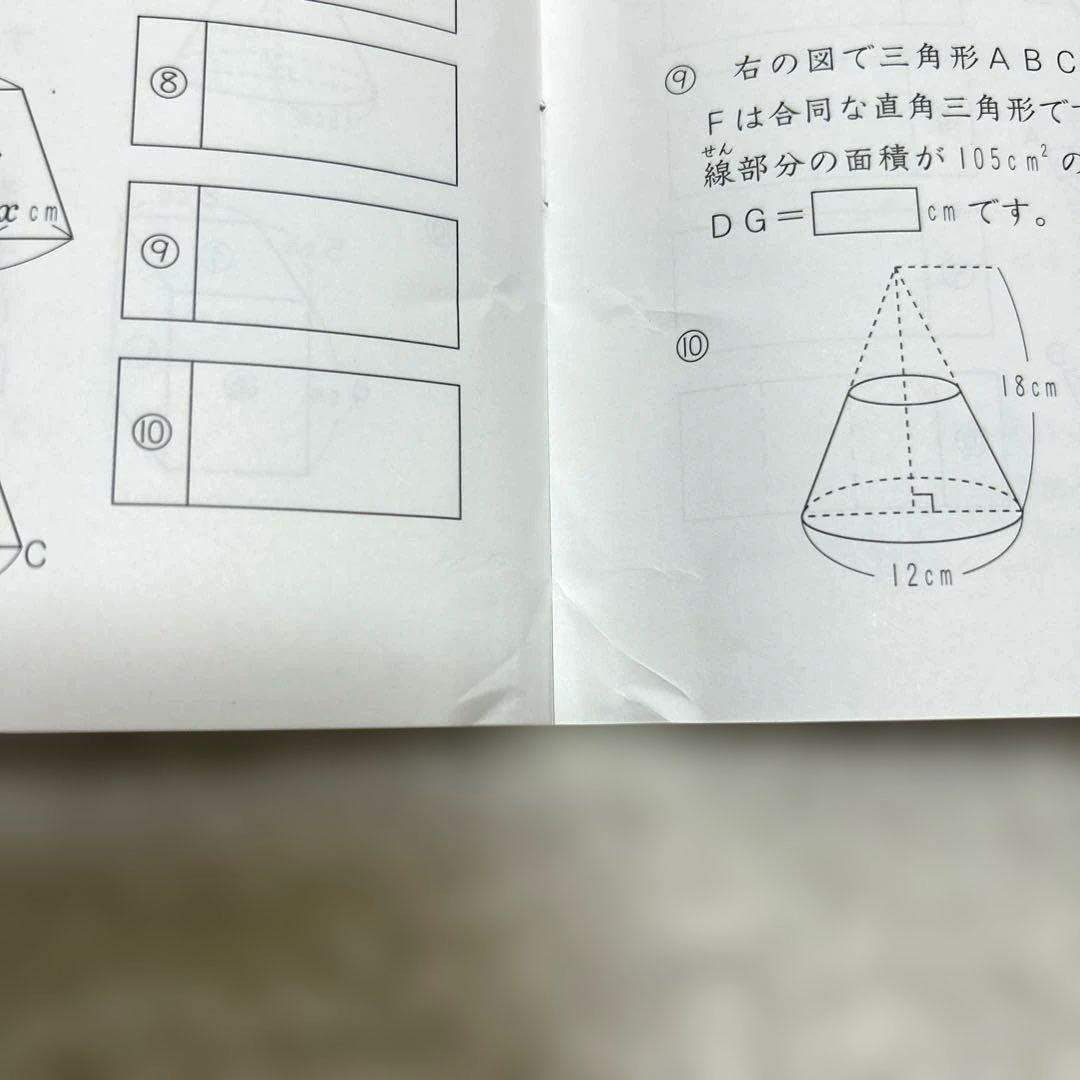 x cm
C
⑧
⑨
⑩
⑨ 右の図で三角形ABC
Fは合同な直角三角形で
せん
線部分の面積が105cm²の
DG=cmです。
⑩
18cm
12cm